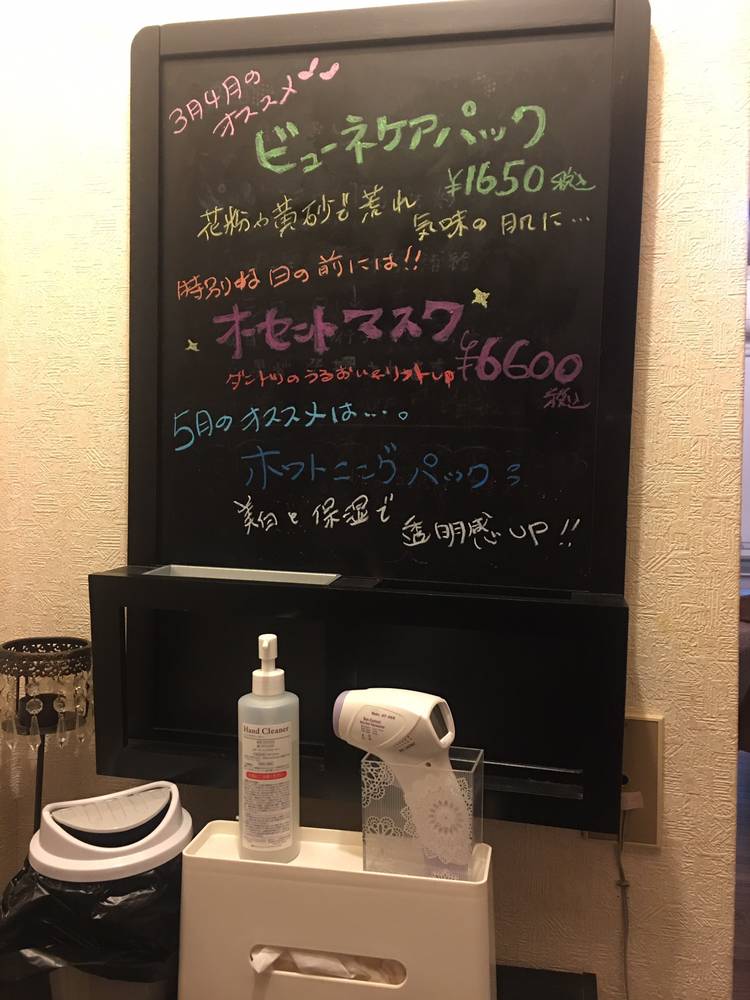 3月4月の
オススメ
ビューネケアパック
¥1650税込
花粉や黄砂で荒れ
気味の肌に…
特別な日の前には!!
オーセントマスク
¥6600
税込
ダントツのうるおい&リフトup
5月のオススメは…。
ホワイトニングパック
美白と保湿で
透明感UP!!
Hand Cleaner
Non Contact